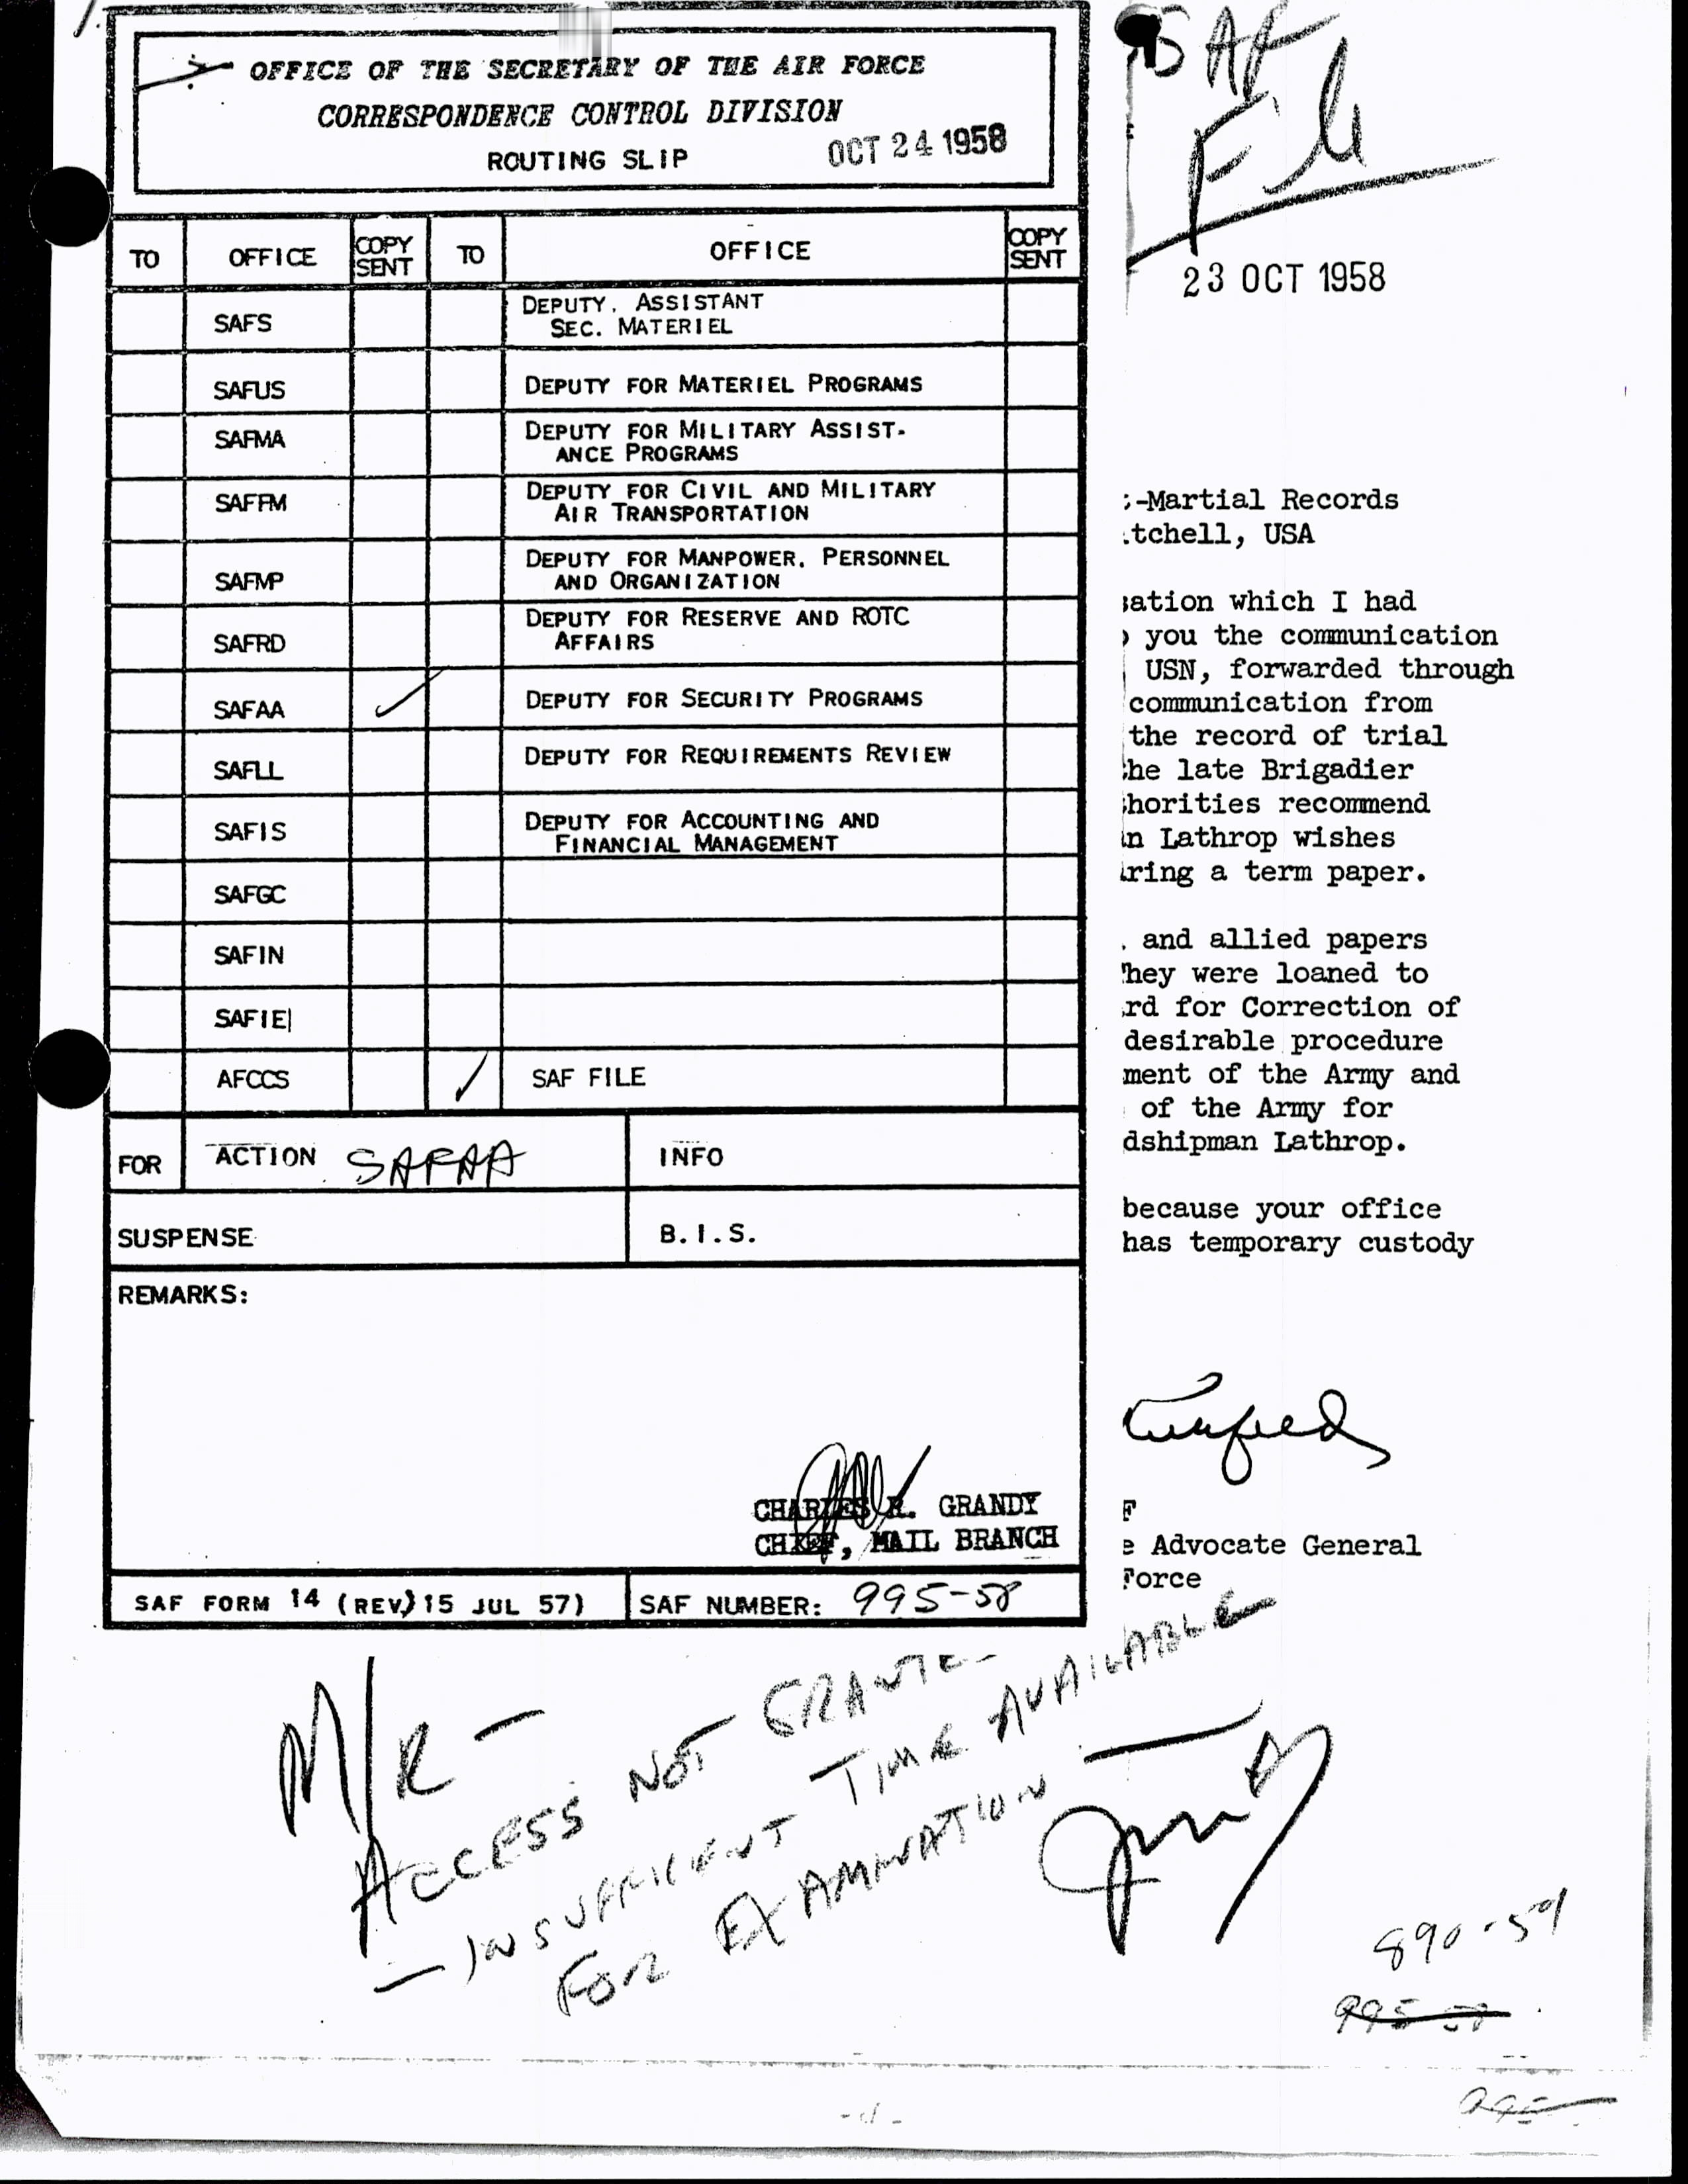 OFFICE OF THE SECRETARY OF THE AIR FORCE
CORRESPONDENCE CONTROL DIVISION
ROUTING SLIP OCT 24 1958
TO OFFICE COPY SENT TO OFFICE COPY SENT
SAFS DEPUTY, ASSISTANT
SEC. MATERIEL
SAFUS DEPUTY FOR MATERIEL PROGRAMS
SAFMA DEPUTY FOR MILITARY ASSIST-
ANCE PROGRAMS
SAFFM DEPUTY FOR CIVIL AND MILITARY
AIR TRANSPORTATION
SAFMP DEPUTY FOR MANPOWER, PERSONNEL
AND ORGANIZATION
SAFRD DEPUTY FOR RESERVE AND ROTC
AFFAIRS
SAFAA DEPUTY FOR SECURITY PROGRAMS
SAFLL DEPUTY FOR REQUIREMENTS REVIEW
SAFIS DEPUTY FOR ACCOUNTING AND
FINANCIAL MANAGEMENT
SAFGC
SAFIN
SAFIE
AFCCS SAF FILE
FOR ACTION SAFAA INFO
SUSPENSE B.I.S.
REMARKS:
CHARLES R. GRANDY
CHIEF, MAIL BRANCH
SAF FORM 14 (REV) 15 JUL 57) SAF NUMBER: 995-58
SAF
File
23 OCT 1958
-Martial Records
tchell, USA
ation which I had
you the communication
USN, forwarded through
communication from
the record of trial
he late Brigadier
horities recommend
n Lathrop wishes
ring a term paper.
. and allied papers
hey were loaned to
rd for Correction of
desirable procedure
ment of the Army and
of the Army for
dshipman Lathrop.
because your office
has temporary custody
F
e Advocate General
Force
M/R -
ACCESS NOT GRANTE-
- INSUFFICIENT TIME AVAILABLE
FOR EXAMINATION
890-59
995-58
995